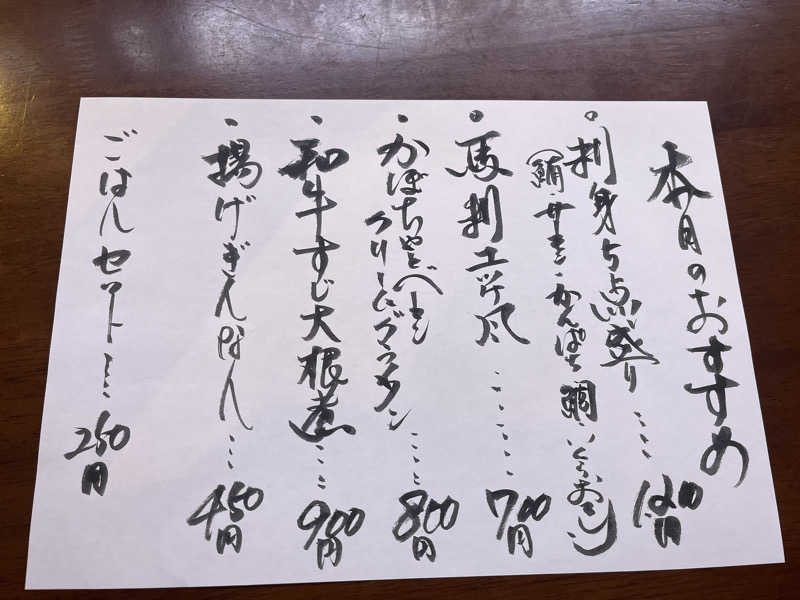 本日のおすすめ
・刺身5点盛り……1,200円
(鮪・サーモン・かんぱち・鯛・いくらおろし)
・馬刺ユッケ風……700円
・かぼちゃとベーコン
クリームグラタン……800円
・和牛すじ大根煮……900円
・揚げぎんなん…450円
ごはんセット……250円